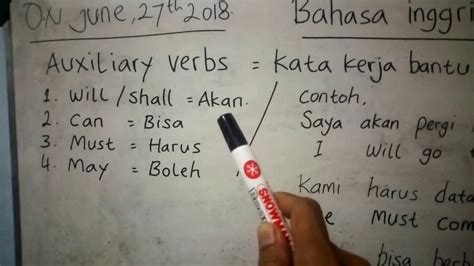 ON june, 27th 2018. Bahasa inggri
Auxiliary verbs = kata kerja bantu
1. Will / shall = Akan. / Contoh,
2. Can = Bisa Saya akan pergi
3. Must = Harus I will go
4. May = Boleh Kami harus data
Must com
bisa
SNOWMAN